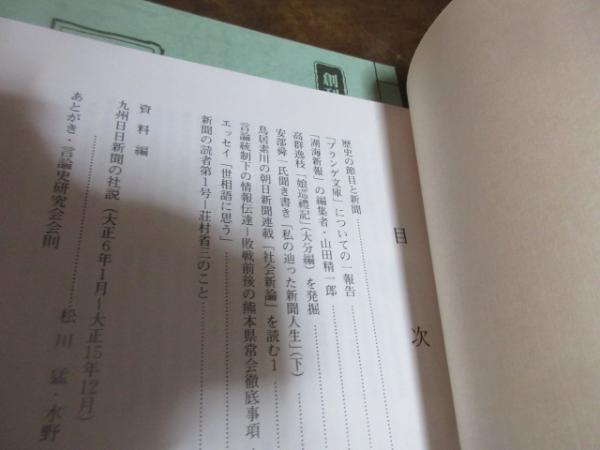 目次
歴史の節目と新聞
「プランゲ文庫」についての一報告
「湖海新報」の編集者・山田精一郎
高群逸枝「娘巡禮記」(大分編)を発掘
安部舜一氏聞き書き「私の辿った新聞人生」(下)
鳥居素川の朝日新聞連載「社会新論」を読む1
言論統制下の情報伝達ー敗戦前後の熊本県常会徹底事項
エッセイ「世相語に思う」
新聞の読者第1号ー荘村省三のこと
資料編
九州日日新聞の社説(大正6年1月ー大正15年12月)
あとがき・言論史研究会会則
松川猛・水野
創刊